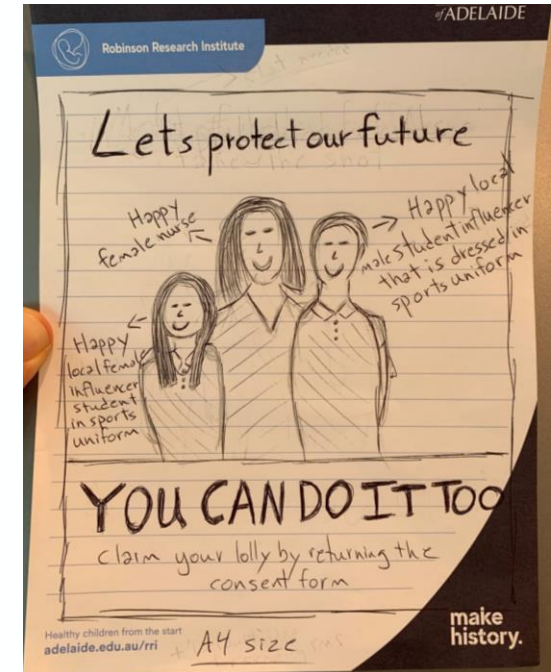 of ADELAIDE
Robinson Research Institute
Lets protect our future
Happy
female nurse
Happy local
male student influencer
that is dressed in
sports uniform
Happy
local female
influencer
student
in sports
uniform
YOU CAN DO IT TOO
claim your lolly by returning the
consent form
Healthy children from the start
adelaide.edu.au/rri
A4 size
make
history.